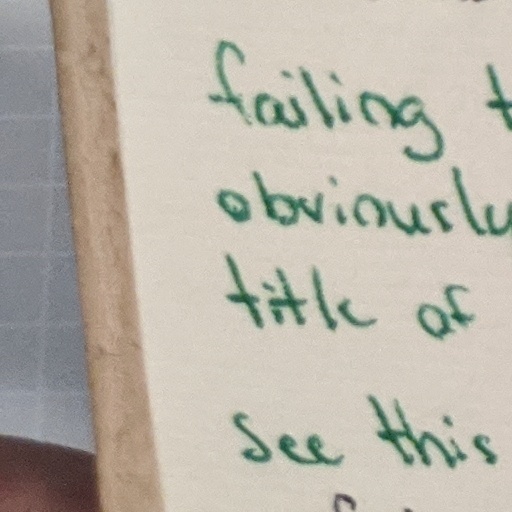 failing t
obviously
title of
See this